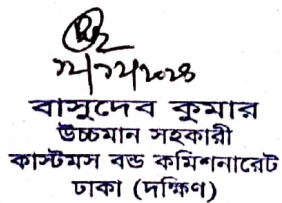 বাসুদেব কুমার
উচ্চমান সহকারী
কাস্টমস বন্ড কমিশনারেট
ঢাকা (দক্ষিণ)